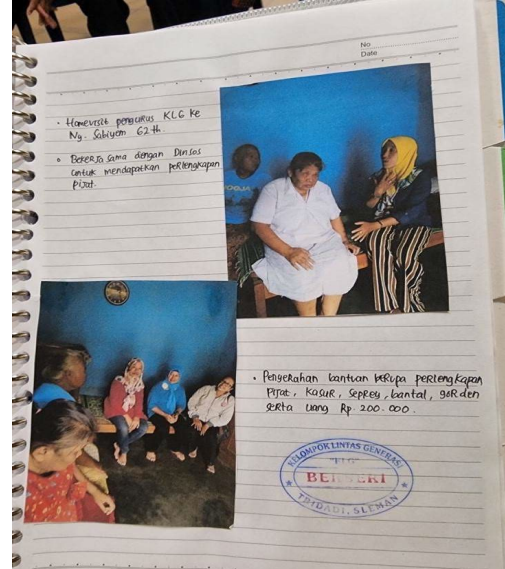 No
Date
• Homevisit pengurus KLG ke
Ny. Sabiyem 62 th.
• Bekerja sama dengan Dinsos
untuk mendapatkan perlengkapan
pijat.
• Penyerahan bantuan berupa perlengkapan
pijat, kasur, seprey, bantal, gorden
serta uang Rp 200.000.
KELOMPOK LINTAS GENERASI
"KLG"
TRIDADI, SLEMAN